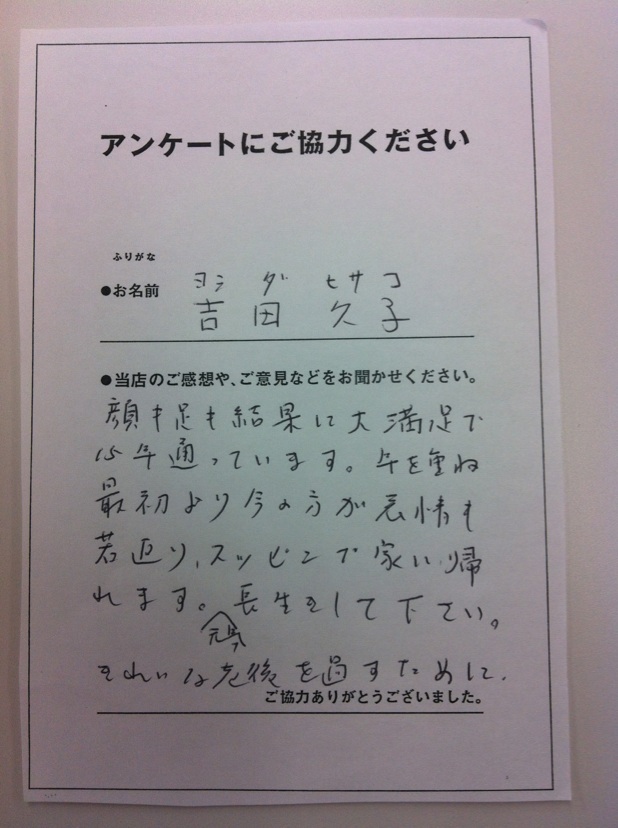 アンケートにご協力ください
ふりがな
ヨシダ ヒサコ
●お名前 吉田 久子
●当店のご感想や、ご意見などをお聞かせください。
顔も足も結果に大満足で
15年通っています。年を重ね
最初より今の方が表情も
若返り、スッピンで家に帰
れます。長生きして下さい。
元気
きれいな老後を過すために、
ご協力ありがとうございました。